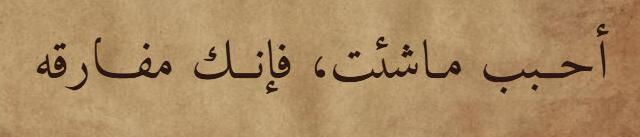 أحبب ماشئت، فإنك مفارقه